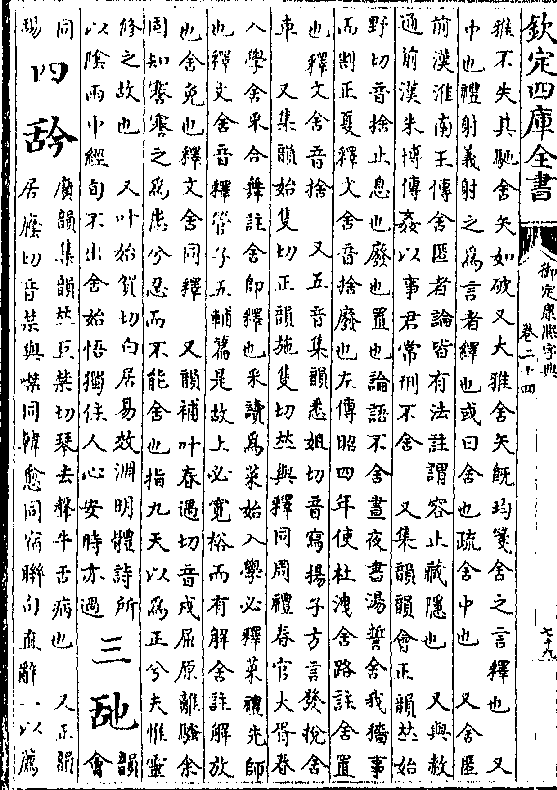 欽定四庫全書
御定康熙字典
卷二十四
七十九
雅不失其馳舍矢如破又大雅舍矢旣均箋舍之言釋也 又
中也禮射義射之爲言者釋也或曰舍也疏舍中也 又舍匿
前漢淮南王傳舍匿者論皆有法註謂容止藏隱也 又與赦
通前漢朱博傳姦以事君常刑不舍 又集韻韻會正韻𠀤始
野切音捨止息也廢也置也論語不舍晝夜書湯誓舍我穡事
而割正夏釋文舍音捨廢也左傳昭四年使杜洩舍路註舍置
也釋文舍音捨 又五音集韻悉姐切音寫揚子方言發稅舍
車 又集韻始隻切正韻施隻切𠀤與釋同周禮春官大胥春
入學舍采合舞註舍卽釋也采讀爲菜始入學必釋菜禮先師
也釋文舍音釋管子五輔篇是故上必寬裕而有解舍註解放
也舍免也釋文舍同釋 又韻補叶春遇切音戍屈原離騷余
固知謇謇之爲患兮忍而不能舍也指九天以爲正兮夫惟靈
修之故也 又叶始賀切白居易效淵明體詩所
以陰雨中經旬不出舍始悟獨往人心安時亦過
三 舓 韻會
同
舓
四 䑤 廣韻集韻𠀤巨禁切琴去聲牛舌病也 又正韻
居廕切音禁與噤同韓愈同宿聯句直辭一以薦